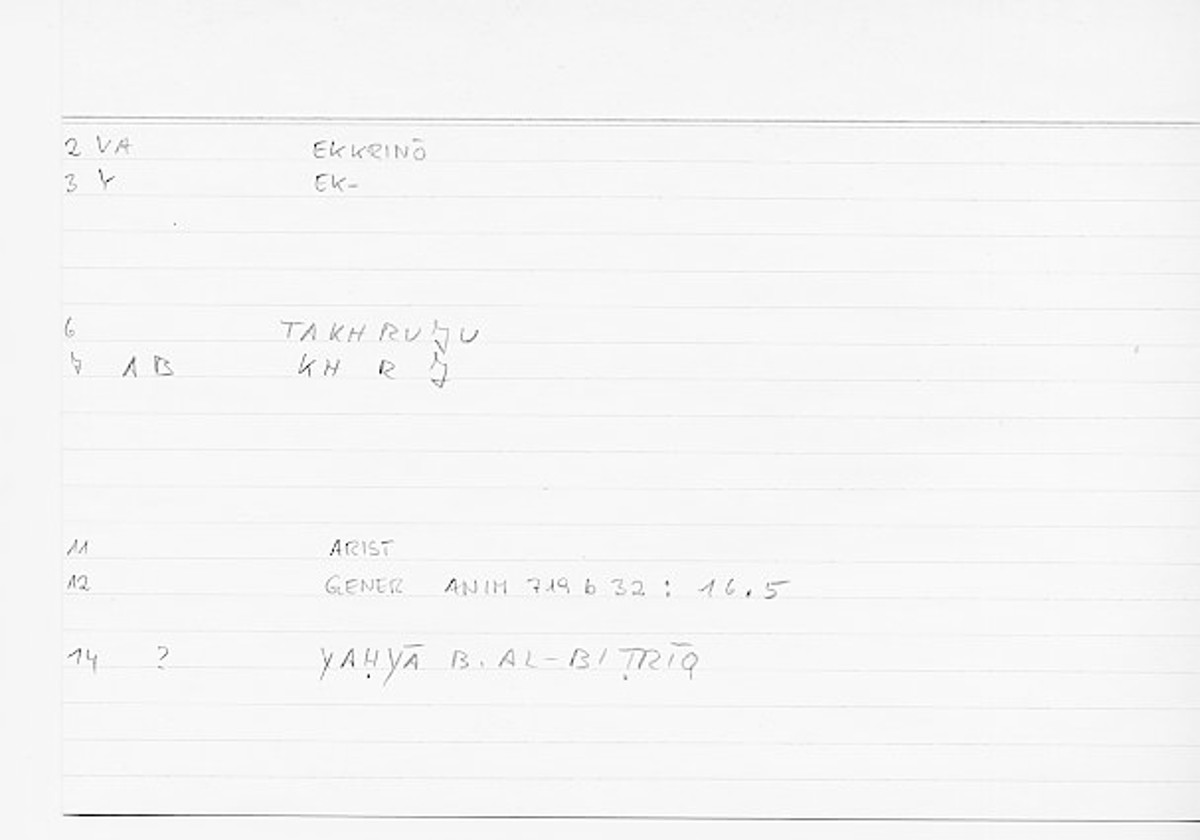 2 VA EKKRINŌ
3 Y EK-
6 TAKHRUǦU
7 AB KH R Ǧ
11 ARIST
12 GENER ANIM 719 b 32 : 16.5
14 ? YAḤYĀ B. AL-BIṬRĪQ